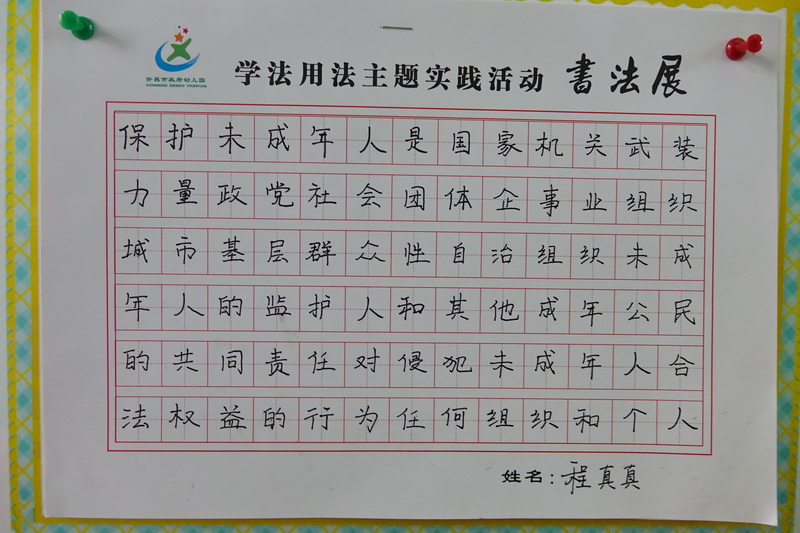 许昌市政府幼儿园
学法用法主题实践活动 书法展
保护未成年人是国家机关武装
力量政党社会团体企事业组织
城市基层群众性自治组织未成
年人的监护人和其他成年公民
的共同责任对侵犯未成年人合
法权益的行为任何组织和个人
姓名：程真真